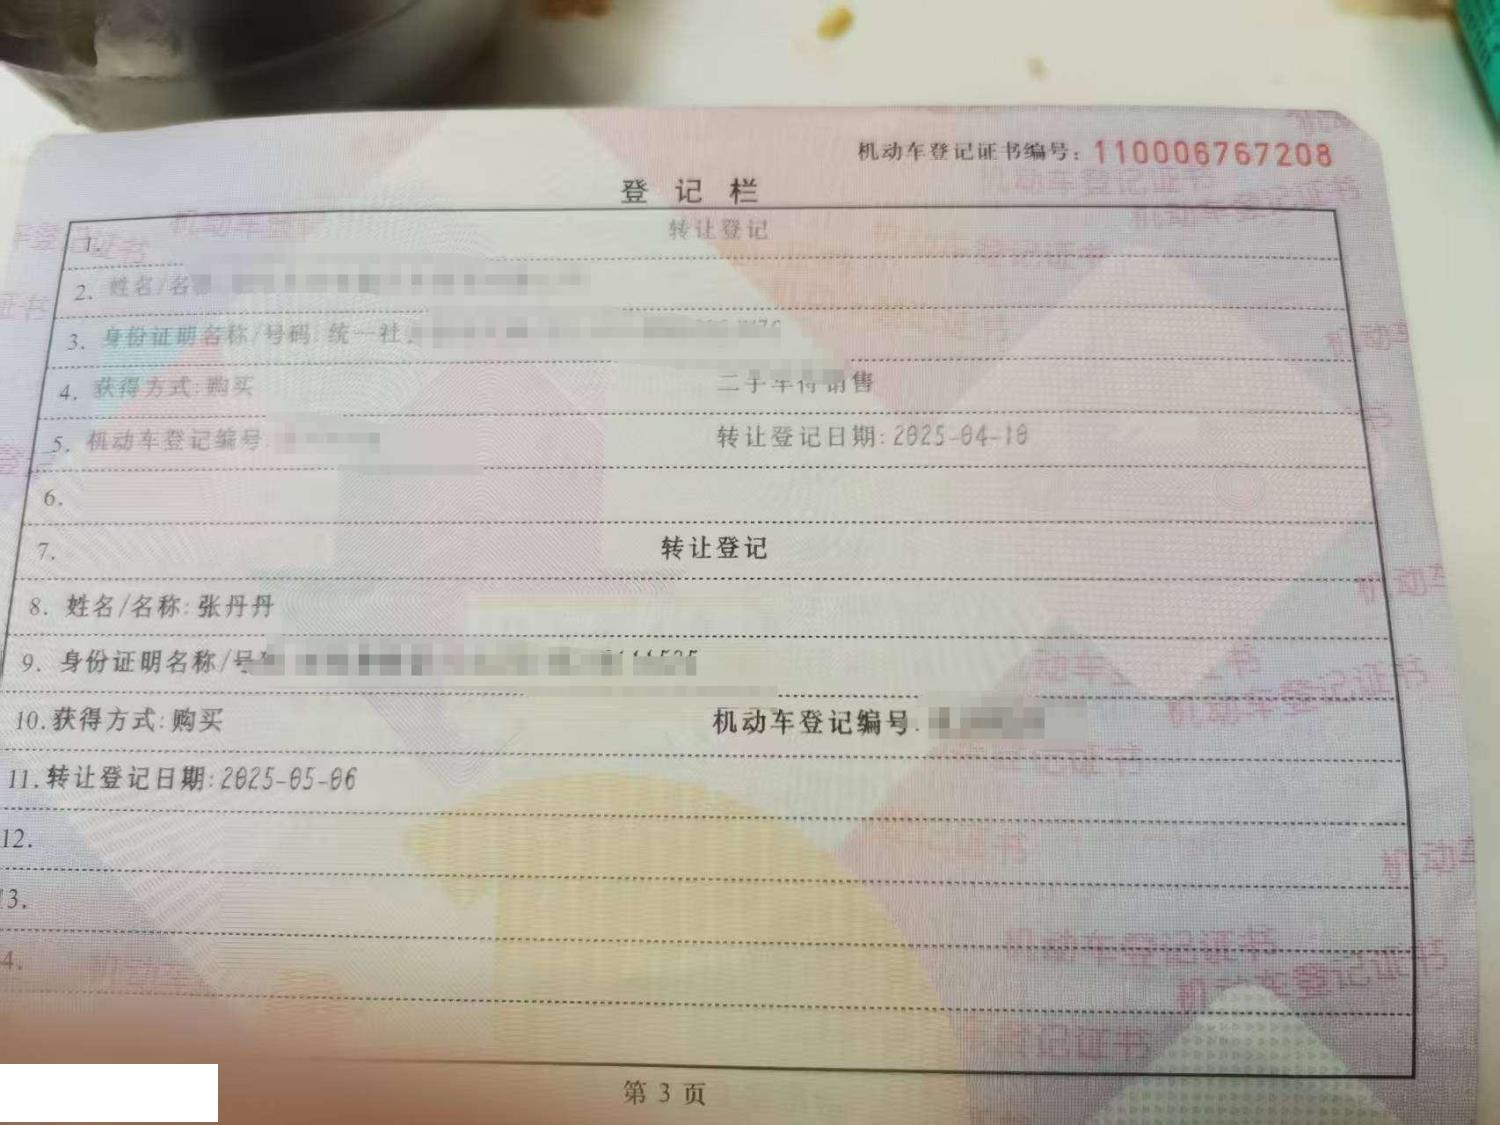 机动车登记证书编号：110006767208
登 记 栏
1. 转让登记
2. 姓名/名
3. 身份证明名称/号码:统一社
4. 获得方式:购买 二手车待销售
5. 机动车登记编号 转让登记日期:2025-04-10
6.
7. 转让登记
8. 姓名/名称:张丹丹
9. 身份证明名称/号
10.获得方式:购买 机动车登记编号
11.转让登记日期:2025-05-06
12.
13.
4.
第 3 页